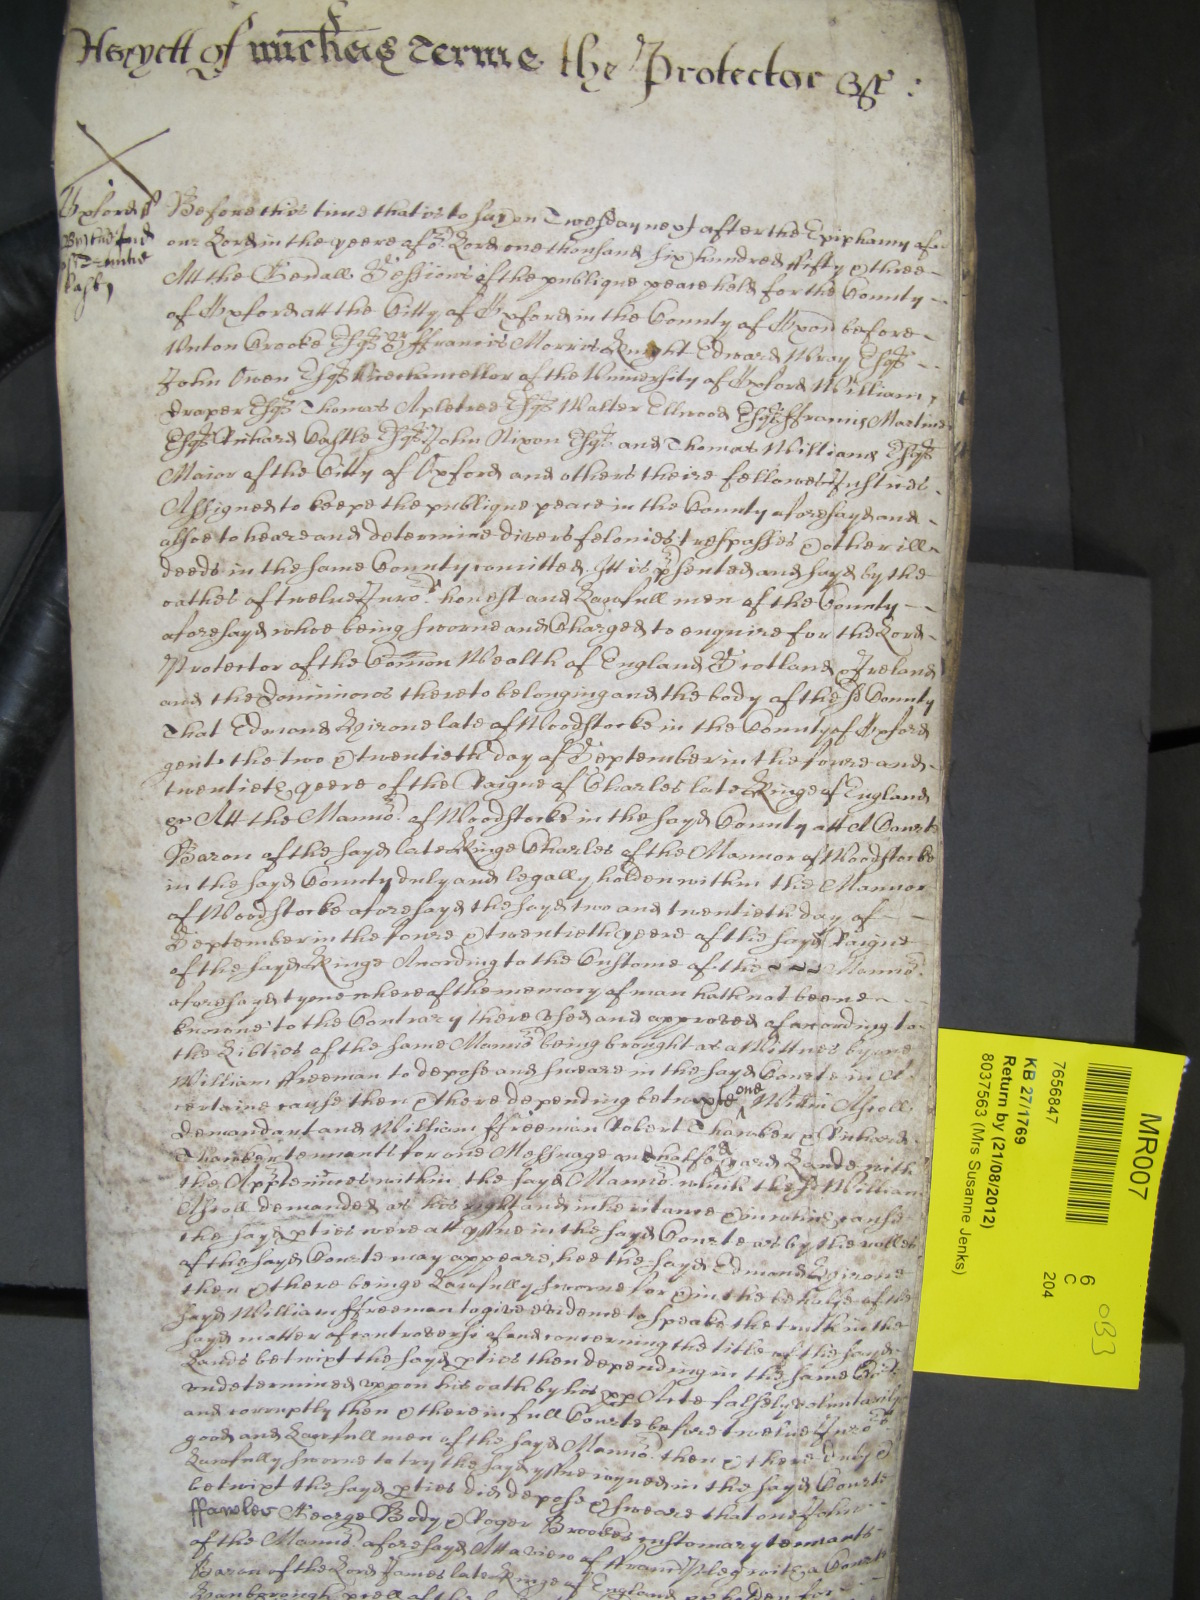 of Michās Terme the Protector &c :
Oxford ss
Before this time that is to say on Twesday next after the Epiphany of
our Lord in the yeere of oʳ Lord one thousand six hundred fifty & three
Att the Gen̄all Sessions of the publique peace held for the County
of Oxford att the Citty of Oxford in the County of Oxon before
Unton Crooke Esqʳ Sʳ ffrancis Morris Knight Edward Wray Esqʳ
John Owen Esqʳ Vicechancellor of the University of Oxford William
Draper Esqʳ Thomas Apletree Esqʳ Walter Ellwood Esqʳ ffrancis Martine
Esqʳ Richard Castle Esqʳ John Nixon Esqʳ and Thomas Williams Esqʳ
Maior of the Citty of Oxford and others theire fellowes Justices
Assigned to keepe the publique peace in the County aforesayd and
alsoe to heare and determine divers felonies trespasses & other ill
deeds in the same County com̄itted Itt is p̄sented and sayd by the
oathes of twelve Juroʳs honest and Lawfull men of the County
aforesayd whoe being sworne and Charged to enquire for the Lord
Protector of the Com̄on Wealth of England Scotland & Ireland
and the Dominions thereto belonging and the body of the sd County
That Edmond late of Woodstocke in the County of Oxford
gent the two & twentieth day of September in the foure and
twentieth yeere of the Raigne of Charles late Kinge of England
&c Att the Mannoʳ of Woodstocke in the sayd County att A Courte
Baron of the sayd late Kinge Charles of the Mannor of Woodstocke
in the sayd County duly and legally holden within the Mannor
of Woodstocke aforesayd the sayd two and twentieth day of
September in the foure & twentieth yeere of the sayd Raigne
of the sayd Kinge According to the Custome of the Mannoʳ
aforesayd tyme whereof the memory of man hath not beene
knowne to the Contrary there used and approved of according to
the Libties of the same Mannoʳ being brought as a Wittnes by one
William ffreeman to depose and sweare in the sayd Courte in A
certaine cause then & there depending betwixte one Willm Ascoll
demandant and William ffreeman Robert Thamber & Richard
Thamber tennants for one Messuage and halfe a yard Lande with
the Apptenn̄ces within the sayd Mannoʳ which the sd William
Ascoll demanded as his right and inheritance & in which cause
the sayd pties were att yssue in the sayd Courte as by the rolles
of the sayd Courte may appeare, hee the sayd Edmond
then & there beinge Lawfully sworne for & in the behalfe of the
sayd William ffreeman to give evidence to speake the truth in the
sayd matter of controversi of and concerning the title of the sayd
Lands betwixt the sayd pties then depending in the same Corte
undetermined uppon his oath by his pp Acte falsely voluntarily
and corruptly then & there in full Courte before twelve Juroʳs
good and Lawfull men of the sayd Mannoʳ then & there duly &
Lawfully sworne to try the sayd yssue joyned in the sayd Courte
betwixt the sayd pties did depose & sweare that one John
ffawler George Body & Roger Brookes customary tennants
of the Mannoʳ aforesayd Att a view of ffranc Pledg with a Courte
Baron of the Lord James late Kinge of England &c holden for
MR007
7656847
KB 27/1769
Return by (21/08/2012)
8037563 (Mrs Susanne Jenks)
6
C
204
083